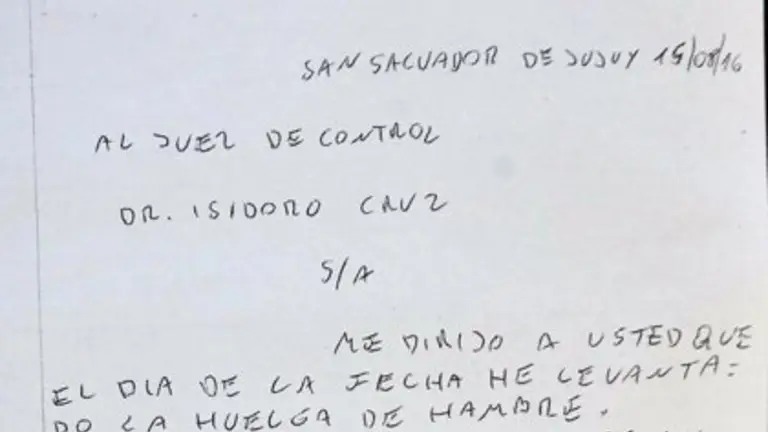 SAN SALVADOR DE JUJUY 15/08/16
AL JUEZ DE CONTROL
DR. ISIDORO CRUZ
S/A
ME DIRIJO A USTED QUE
EL DIA DE LA FECHA HE LEVANTA=
DO LA HUELGA DE HAMBRE.